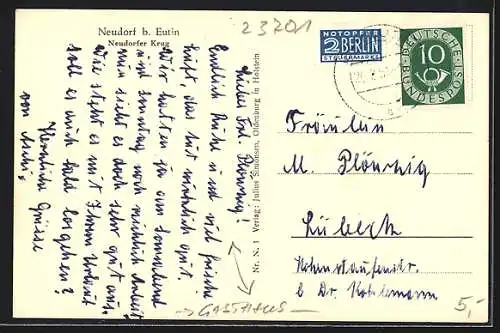 Neudorf b. Eutin
Neudorfer Krug
23701
Liebes Frl. Plönzig!
Endlich Ruhe und viel frische
Luft, das tut wirklich gut.
Wir hatten ja am Sonnabend
und Sonntag noch reichlich Arbeit
nun sieht es doch sehr gut aus.
Wie steht es mit Ihrem Urlaub
soll es auch bald losgehen?
Herzliche Grüsse
von
Nr. N. 1 Verlag: Julius Simonsen, Oldenburg in Holstein
→ GASTHAUS
NOTOPFER
2 BERLIN
STEUERMARKE
DEUTSCHE
BUNDESPOST
10
Fräulein
M. Plönzig
Lübeck
Hohenstaufenstr.
b Dr.
5,-